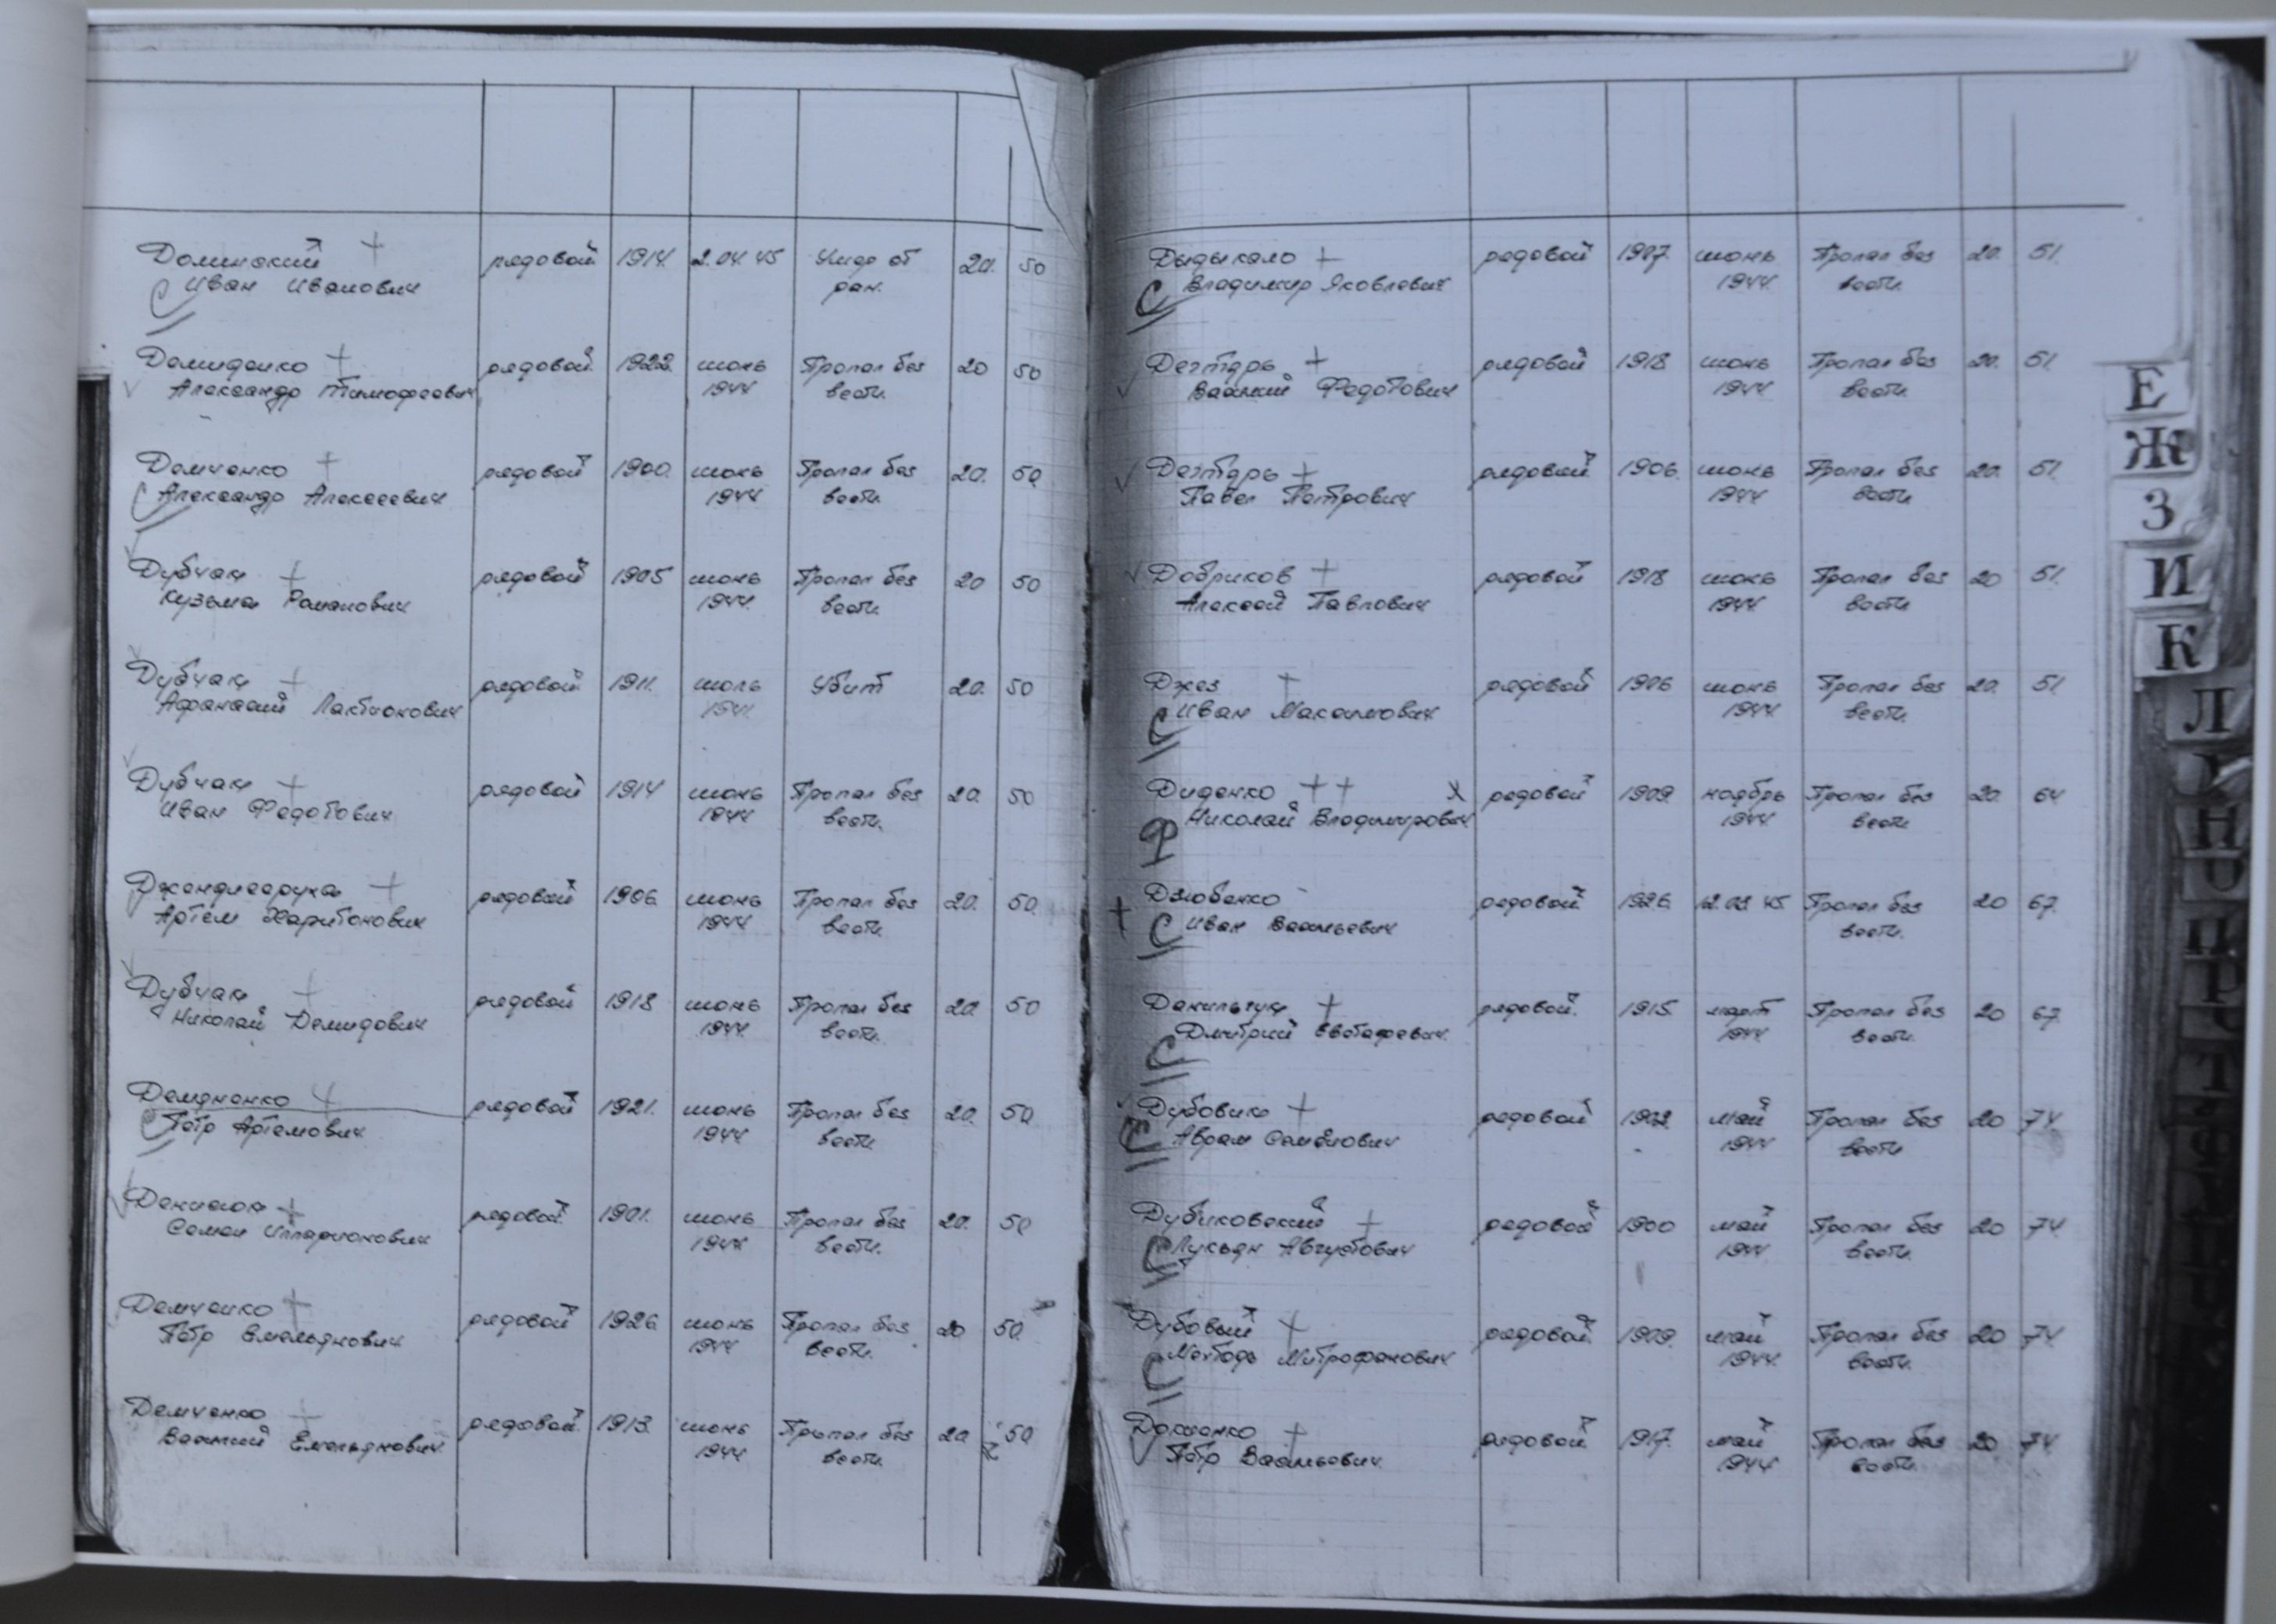 Доминский + рядовой 1914. 2.04.45 Умер от 20. 50
С Иван Иванович ран.
Демиденко + рядовой 1922. июнь Пропал без 20 50
Александр Тимофеевич 1944 вести.
Демченко + рядовой 1900. июнь Пропал без 20. 50
С Александр Алексеевич 1944 вести.
Дубчак + рядовой 1905 июнь Пропал без 20 50
Кузьма Романович 1944. вести.
Дубчак + рядовой 1911. июль Убит 20. 50
Афанасий Лактионович
Дубчак + рядовой 1914 июнь Пропал без 20. 50
Иван Федотович 1944 вести.
+ рядовой 1906 июнь Пропал без 20. 50
Артем Харитонович 1944 вести.
Дубчак + рядовой 1918 июнь Пропал без 20. 50
Николай Демидович 1944. вести.
Демяненко + рядовой 1921. июнь Пропал без 20. 50
С Пётр Артемович 1944 вести.
+ рядовой 1901. июнь Пропал без 20. 50
Семен Илларионович 1944 вести.
Демченко + рядовой 1926 июнь Пропал без 20 50.
Пётр Емельянович 1944 вести.
Демченко + рядовой 1913. июнь Пропал без 20 50
Василий Емельянович 1944 вести.
Дыдыкало + рядовой 1907. июнь Пропал без 20. 51.
С Владимир Яковлевич 1944. вести.
Дегтярь + рядовой 1918 июнь Пропал без 20. 51
Василий Федотович 1944 вести.
Дегтярь + рядовой 1906. июнь Пропал без 20. 51.
Павел Петрович 1944 вести
Добриков + рядовой 1918 июнь Пропал без 20 51.
Алексей Павлович 1944 вести
Джез + рядовой 1906 июнь Пропал без 20. 51
С Иван Максимович 1944 вести.
Диденко + + х рядовой 1909. ноябрь Пропал без 20. 64
Ф Николай Владимирович 1944 вести
Дзюбенко рядовой 1926. 12.03 45 Пропал без 20 67.
+ С Иван Васильевич вести.
Данильчук + рядовой. 1915. март Пропал без 20 67
С Дмитрий Евстафевич 1944 вести.
Дубовик + рядовой 1902. май Пропал без 20 74.
С Аврам Семёнович 1944 вести
Дубиковский + рядовой 1900 май Пропал без 20 74
С Лукьян Августович 1944 вести.
Дубовый + рядовой 1909. май Пропал без 20 74
С Митрофанович 1944. вести.
+ рядовой 1917. май Пропал без 20 74
Пётр Васильевич 1944 вести.
Е
Ж
З
И
К
Л
Н
О
П
Р